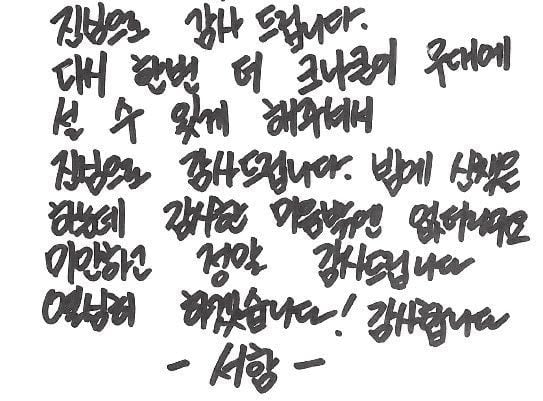 진심으로 감사 드립니다.
다시 한번 더 크나큰이 무대에
설 수 있게 해주셔서
진심으로 감사드립니다. 밤에 산책을
하는데 감사한 마음밖엔 없더라구요
미안하고 정말 감사드립니다
열심히 하겠습니다! 감사합니다
- 서함 -